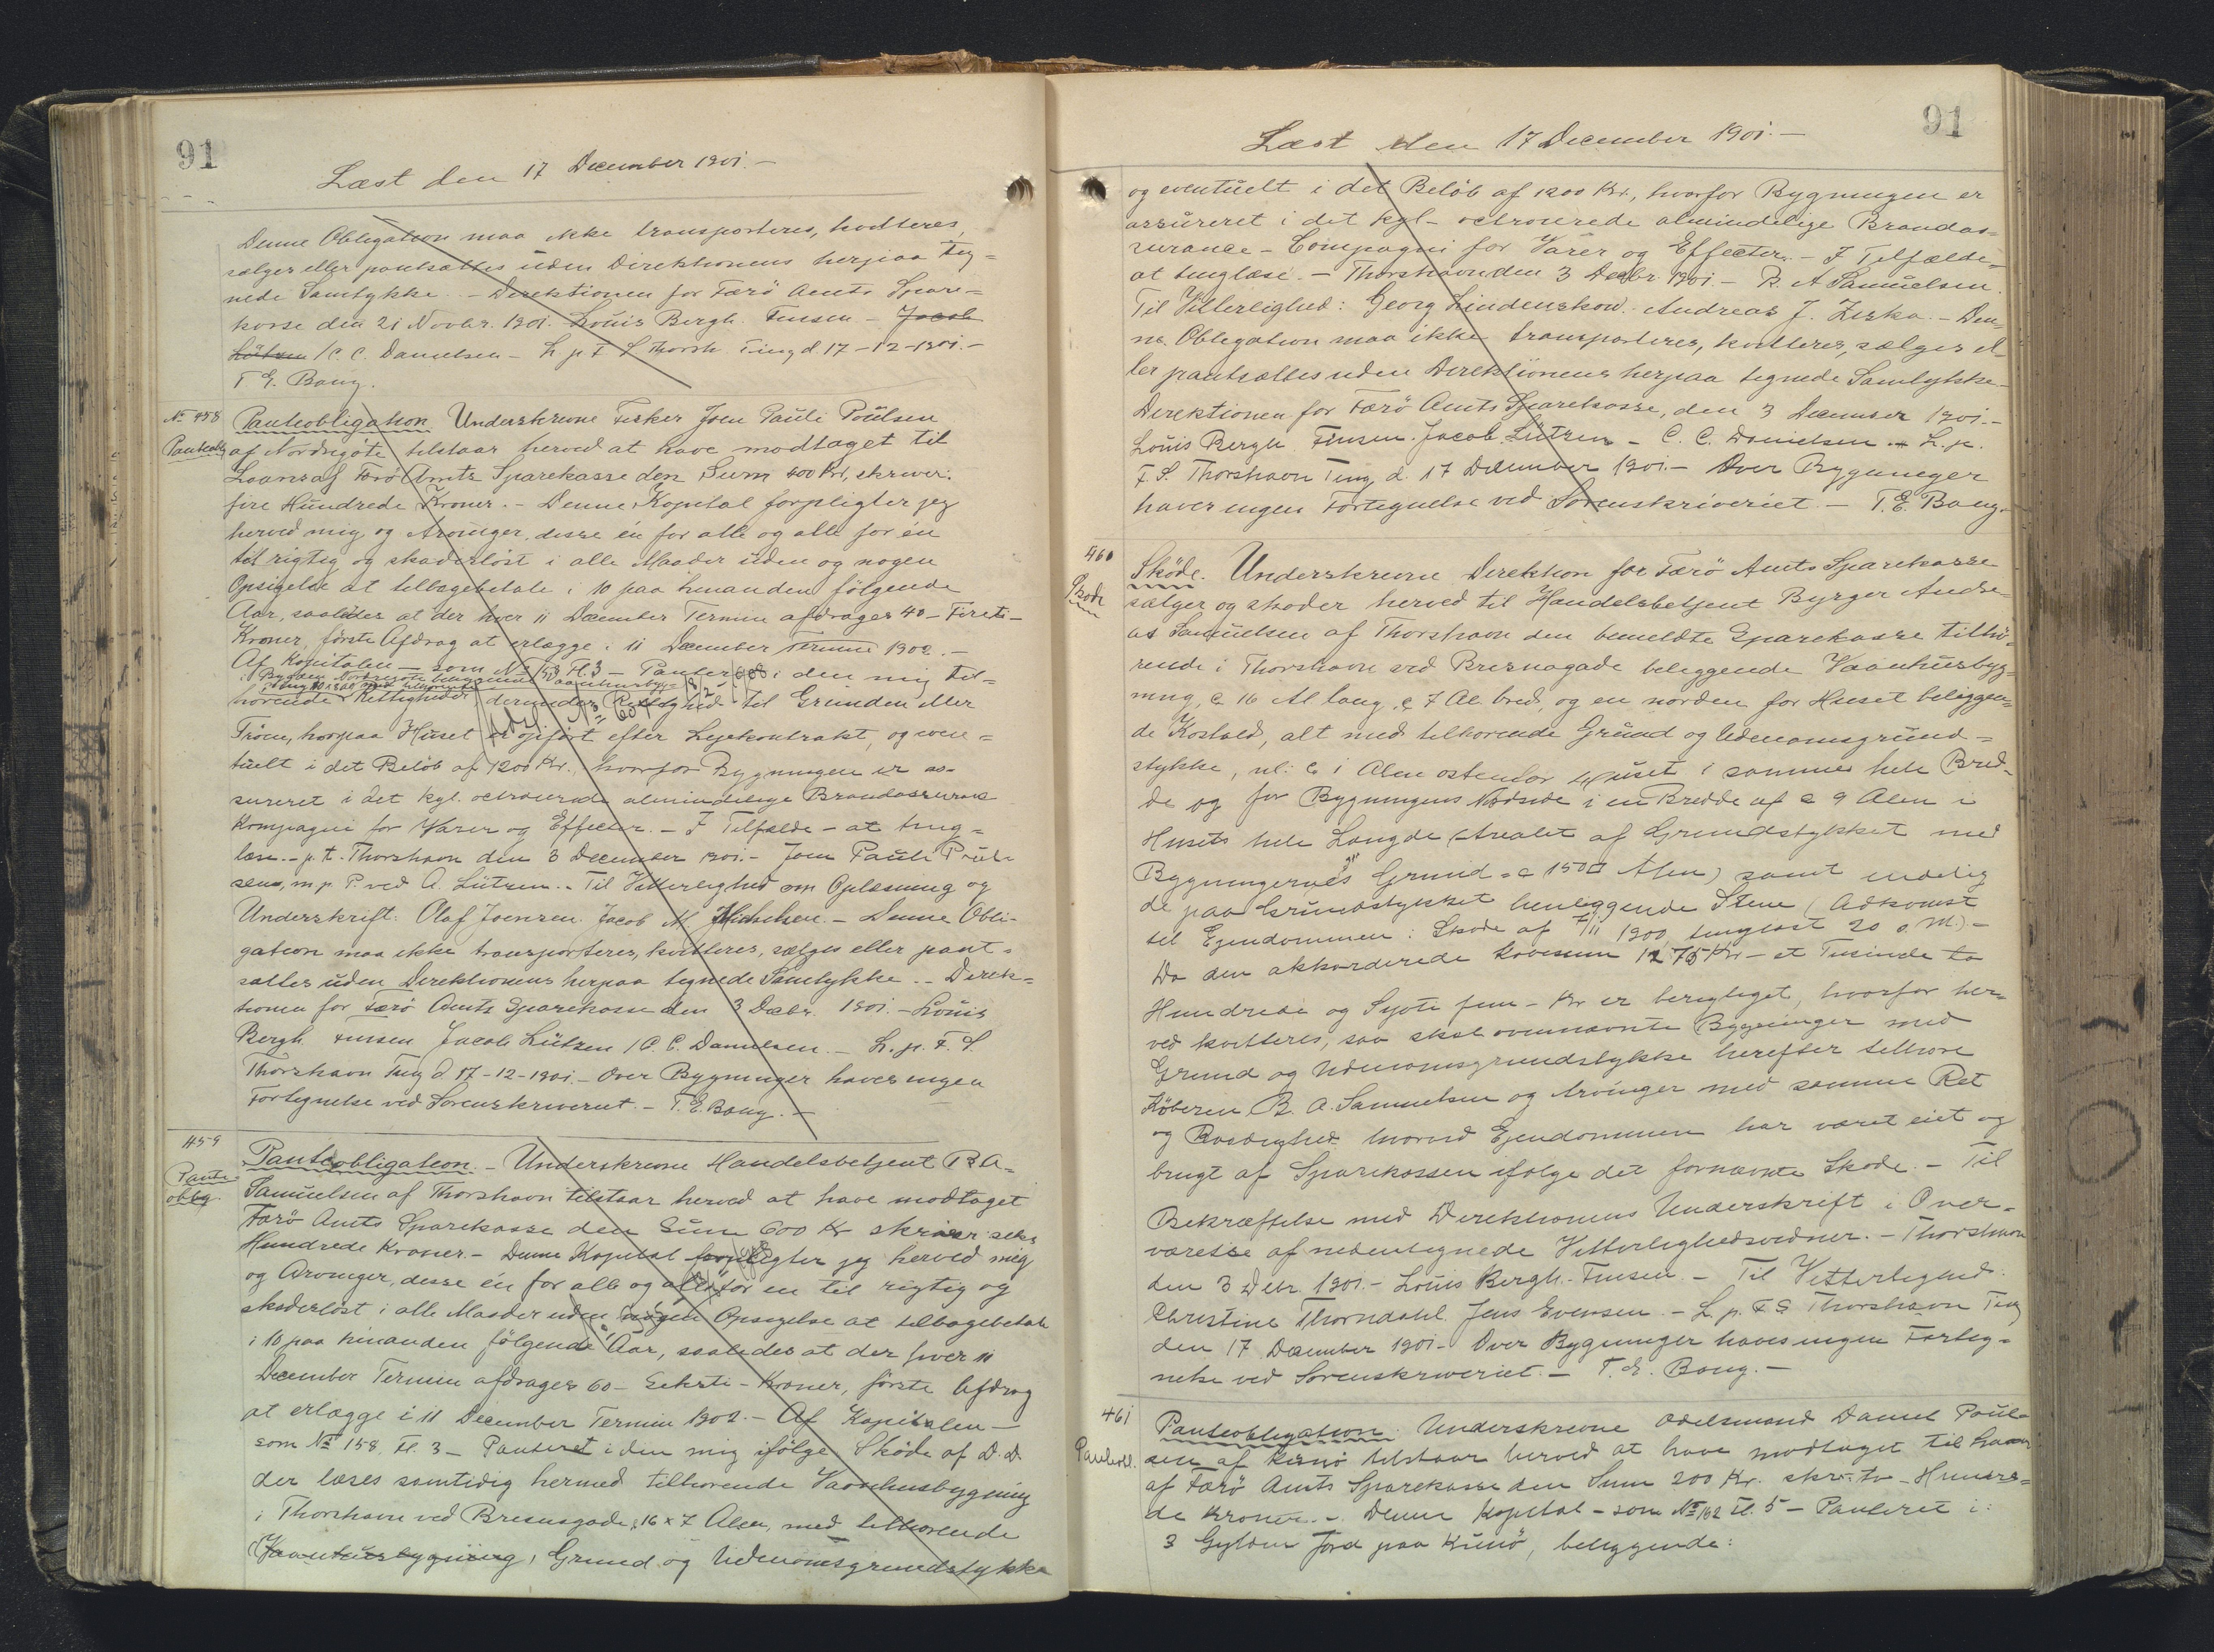 91
Læst den 17 December 1901.-
Denne Obligation maa ikke transporteres, kvitteres,
sælges eller pantsættes uden Direktionens herpaa teg=
nede Samtykke. - Direktionen for Færö Amts Spare=
kasse den 21 Novbr. 1901. Louis Bergh. Finsen - Jacob
Lützen / C. C. Danielsen - L. p. F. S. Thorsh. Ting d. 17-12-1901.-
T. E. Bang.
No 458
Panteobl.
Panteobligation. Underskrevne Fisker Joen Pauli Poulsen
af Nordregöte tilstaar herved at have modtaget til
Laans af Færö Amts Sparekasse den Sum 400 Kr., skriver:
fire Hundrede Kroner. - Denne Kapital forpligter jeg
herved mig og Arvinger, desse én for alle og alle for én
til rigtig og skadeslöst i alle Maader uden og nogen
Opsigelse at tilbagebetale i 10 paa hinanden fölgende
Aar, saaledes at der hver 11 December Termin afdrages 40 - Fireti -
Kroner, förste Afdrag at erlægge i 11 December Termin 1902. -
Af Kapitalen - som No 153 Fl. 3 - Panteret i den mig til=
i Bygden Nordregöte beliggende Vaanhusbyg=
hörende Rettigheder, derunder Rettighed til Grunden eller
Tröen, hvorpaa Huset er opfört efter Lejekontrakt, og even=
tuelt i det Belöb af 1200 Kr., hvorfor Bygningen er as=
sureret i det kgl. octroierede almindelige Brandassurance
Kompagni for Varer og Effecter. - I Tilfælde - at ting=
læse. - p. t. Thorshavn den 3 December 1901. - Joen Pauli Poul=
sen, m. p. P. ved A. Lützen. - Til Vitterlighed om Oplæsning og
Underskrift: Olaf Joensen. Jacob M. Michelsen. - Denne Obli-
gation maa ikke transporteres, kvitteres, sælges eller pant=
sættes uden Direktionens herpaa tegnede Samtykke. - Direk=
tionen for Færö Amts Sparekasse den 3 Decbr. 1901. - Louis
Bergh Finsen Jacob Lützen / C. C. Danielsen. - L. p. F. S.
Thorshavn Ting d. 17-12-1901. - Over Bygninger haves ingen
Fortegnelse ved Sorenskriveriet. - T. E. Bang. -
459
Pante-
oblig.
Panteobligation. - Underskrevne Handelsbetjent B. A.
Samuelsen af Thorshavn tilstaar herved at have modtaget
Færö Amts Sparekasse den Sum 600 Kr skriver seks
Hundrede Kroner. - Denne Kapital forpligter jeg herved mig
og Arvinger, desse én for alle og alle for en til rigtig og
skadeslöst i alle Maader uden nogen Opsigelse at tilbagebetale
i 10 paa hinanden fölgende Aar, saaledes at der hver 11
December Termin afdrages 60 - Seksti - Kroner, förste Afdrag
at erlægge i 11 December Termin 1902. - Af Kapitalen -
som No 158, Fl. 3 - Panteret i den mig ifölge Sköde af D. D.
der læses samtidig hermed tilhörende Vaanhusbygning
i Thorshavn ved Bresnagade, 16 x 7 Alen, med tilhörende
(Vaanhusbygning), Grund og Udenomsgrundstykke
91
Læst den 17 December 1901. -
og eventuelt i det Belöb af 1200 Kr., hvorfor Bygningen er
assureret i det kgl- octroierede almindelige Brandas=
surance - Compagni for Varer og Effecter. - I Tilfælde -
at tinglæse. - Thorshavn den 3 Decbr 1901. - B. A Samuelsen.
Til Vitterlighed: Georg Lindenskov. Andreas J. Ziska. - Den=
ne Obligation maa ikke transporteres, kvitteres, sælges el=
ler pantsættes uden Direktionens herpaa tegnede Samtykke -
Direktionen for Færö Amts Sparekasse, den 3 December 1901. -
Louis Bergh Finsen. Jacob Lützen - C. C. Danielsen. - L. p.
F. S. Thorshavn Ting d. 17 December 1901. - Over Bygninger
haves ingen Fortegnelse ved Sorenskriveriet - T. E. Bang.
460
Sköde
Sköde. Underskrevne Direktion for Færö Amts Sparekasse
sælger og sköder herved til Handelsbetjent Byrger Andre=
as Samuelsen af Thorshavn den bemeldte Sparekasse tilhö=
rende i Thorshavn ved Bresnagade beliggende Vaanhusbyg=
ning, c 16 Al lang, c 7 Al. bred, og en norden for Huset beliggen=
de Kostald, alt med tilhörende Grund og Udenomsgrund=
stykke, nl: c 1 Alen östenfor Huset i sammes hele Bred=
de og for Bygningens Nordside i en Bredde af c 9 Alen i
Husets hele Længde (Arealet af Grundstykket med
Bygningernes Grund = c 150 □ Alen) samt endelig
de paa Grundstykket henliggende Stene (Adkomst
til Ejendommen: Sköde af 7/11 1900, tinglæst 20 s. M.). -
Da den akkorderede Köbesum 1275 Kr - et Tusinde to
Hundrede og Syvti fem - Kr er berigtiget, hvorfor her=
ved kvitteres, saa skal ovennævnte Bygninger med
Grund og Udenomsgrundstykke herefter tilhöre
Köberen B. A. Samuelsen og Arvinger med samme Ret
og Raadighed hvormed Ejendommen har været eiet og
brugt af Sparekassen ifölge det fornævnte Sköde. - Til
Bekræftelse med Direktionens Underskrift i Over=
værelse af nedentegnede Vitterlighedsvidner. - Thorshavn
den 3 Decbr. 1901. - Louis Bergh. Finsen. - Til Vitterlighed:
Christine Thorndahl. Jens Evensen. - L. p. F S Thorshavn Ting
den 17 December 1901 - Over Bygninger haves ingen Forteg=
nelse ved Sorenskriveriet. - T. E. Bang. -
461
Panteobl.
Panteobligation. Underskrevne Odelsmand Daniel Poul=
sen af Kunö tilstaar herved at have modtaget til Laans
af Færö Amts Sparekasse den Sum 200 Kr. skr. to - Hundre=
de Kroner. - Denne Kapital - som No 162 Fl. 5 - Panteret i:
3 Gylden Jord paa Kunö, beliggende: